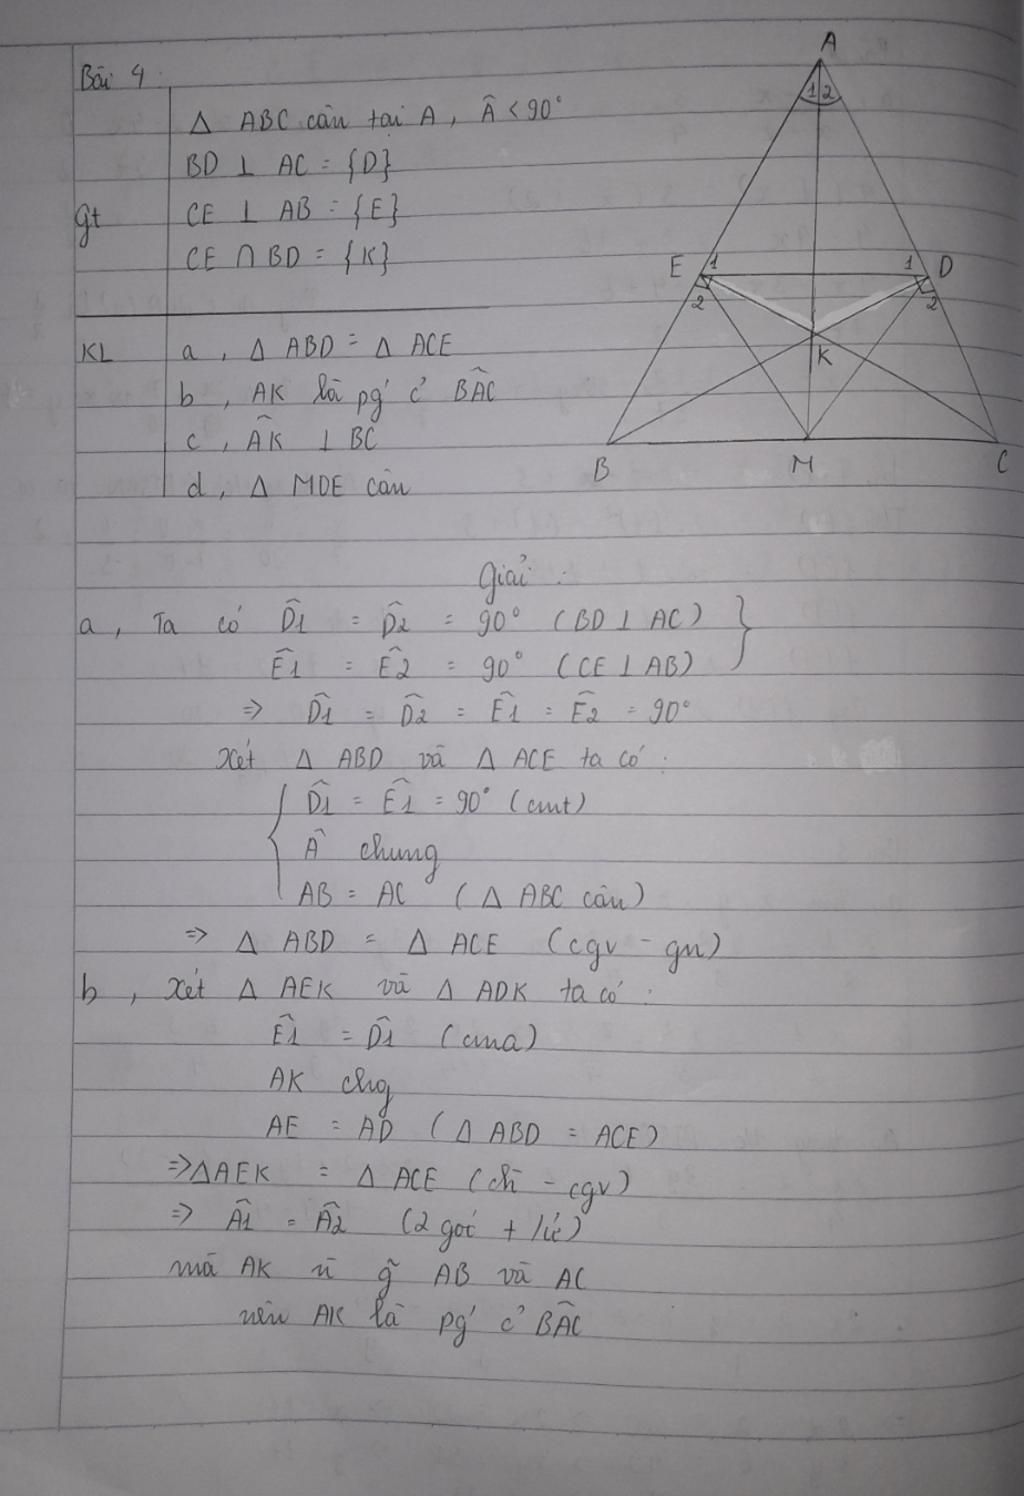 Bài 4:
Δ ABC cân tại A, Â < 90°
BD ⊥ AC = {D}
Gt CE ⊥ AB = {E}
CE ∩ BD = {K}
KL a, Δ ABD = Δ ACE
b, AK là pg' c' BÂC
c, ÂK ⊥ BC
d, Δ MDE cân
A
1 2
E 1 1 D
2 2
K
B M C
Giải:
a, Ta có D̂1 = D̂2 = 90° (BD ⊥ AC) }
Ê1 = Ê2 = 90° (CE ⊥ AB)
=> D̂1 = D̂2 = Ê1 = Ê2 = 90°
Xét Δ ABD và Δ ACE ta có:
{ D̂1 = Ê1 = 90° (cmt)
Â chung
AB = AC (Δ ABC cân)
=> Δ ABD = Δ ACE (cgv - gn)
b, Xét Δ AEK và Δ ADK ta có:
Ê1 = D̂1 (cma)
AK chg
AE = AD (Δ ABD = ACE)
=> Δ AEK = Δ ACE (ch - cgv)
=> Â1 = Â2 (2 góc + /ứ)
mà AK n g̃ AB và AC
nên AK là pg' c' BÂC